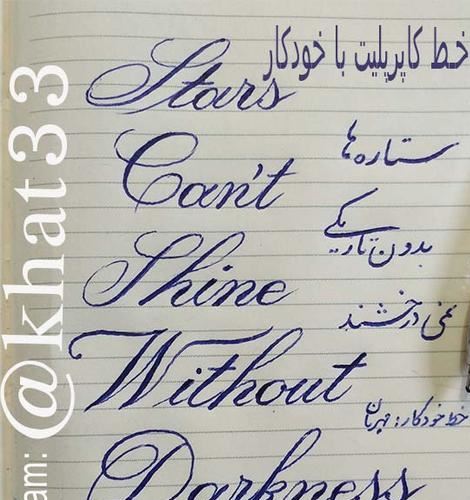 خط کاپرپلیت با خودکار
Stars
ستاره ها
Can't
بدون تاریکی
Shine
نمی درخشند
Without
خط خودکار: مهربان
Darkness
am: @khat33